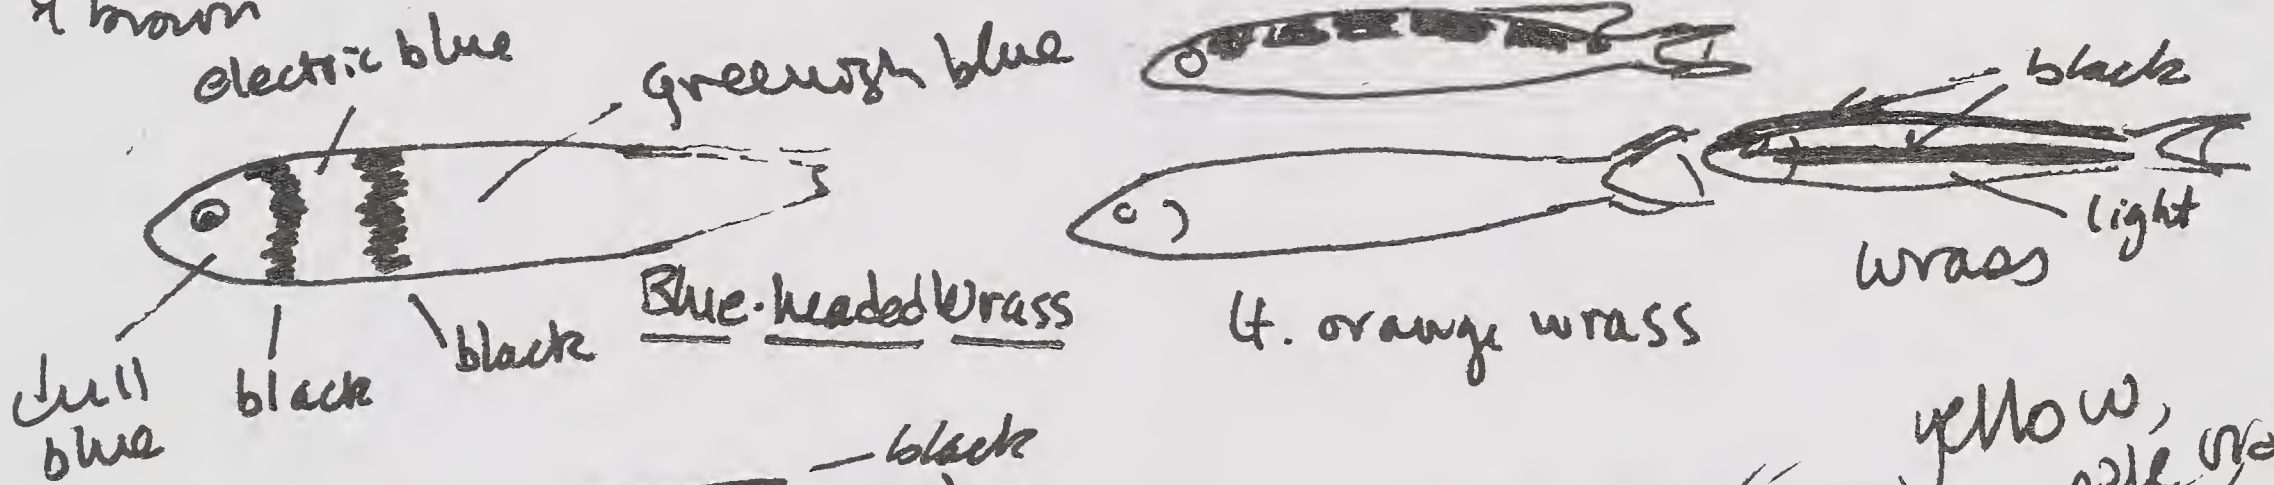 & brown
electric blue
greenish blue
black
light
wrass
dull
blue
black
black
Blue-headed Wrass
lt. orange wrass
black
yellow,